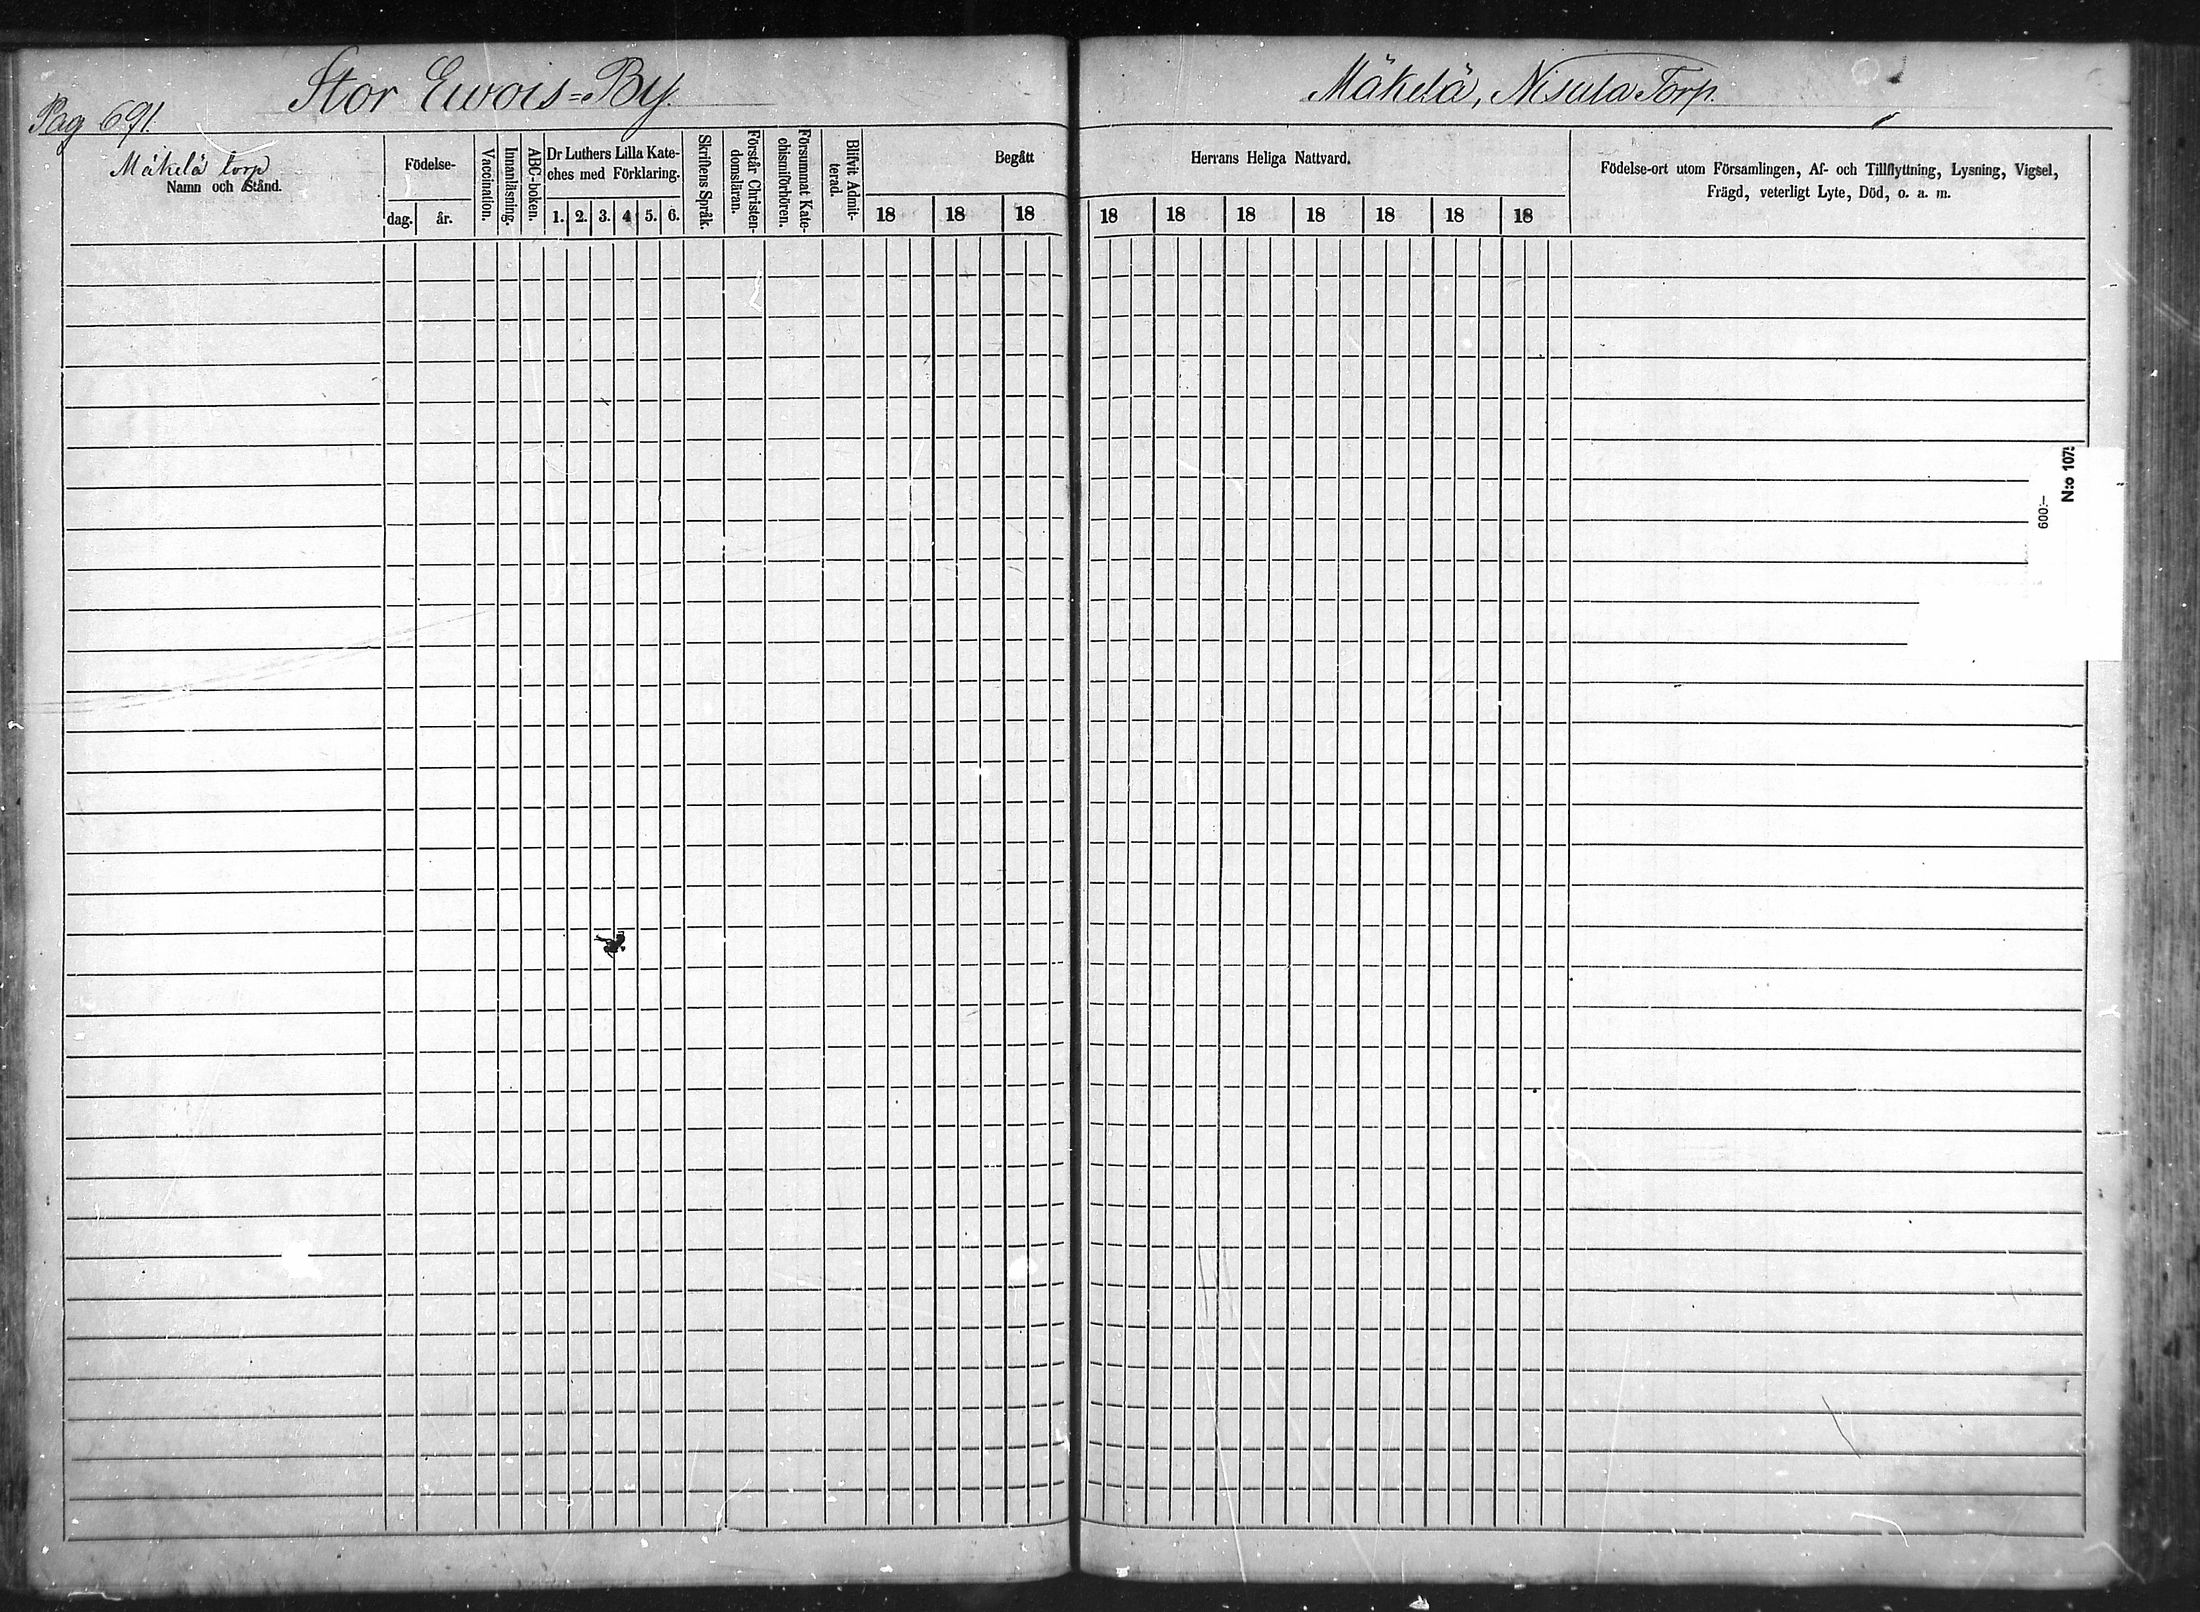 Stor Ewois=By.
Mäkelä, Nisula Torp.
Pag 691.
Mäkelä torp
Namn och Stånd.
Födelse-
dag.
år.
Vaccination.
Innanläsning.
ABC-boken.
Dr Luthers Lilla Kate-
ches med Förklaring.
1. 2. 3. 4 5. 6.
Skriftens Språk.
Förstår Christen-
domsläran.
Försummat Kate-
chismiförhören.
Blifvit Admit-
terad.
Begått
18 18 18
Herrans Heliga Nattvard.
18 18 18 18 18 18 18
Födelse-ort utom Församlingen, Af- och Tillflyttning, Lysning, Vigsel,
Frägd, veterligt Lyte, Död, o. a. m.
600:-
N:o 1075